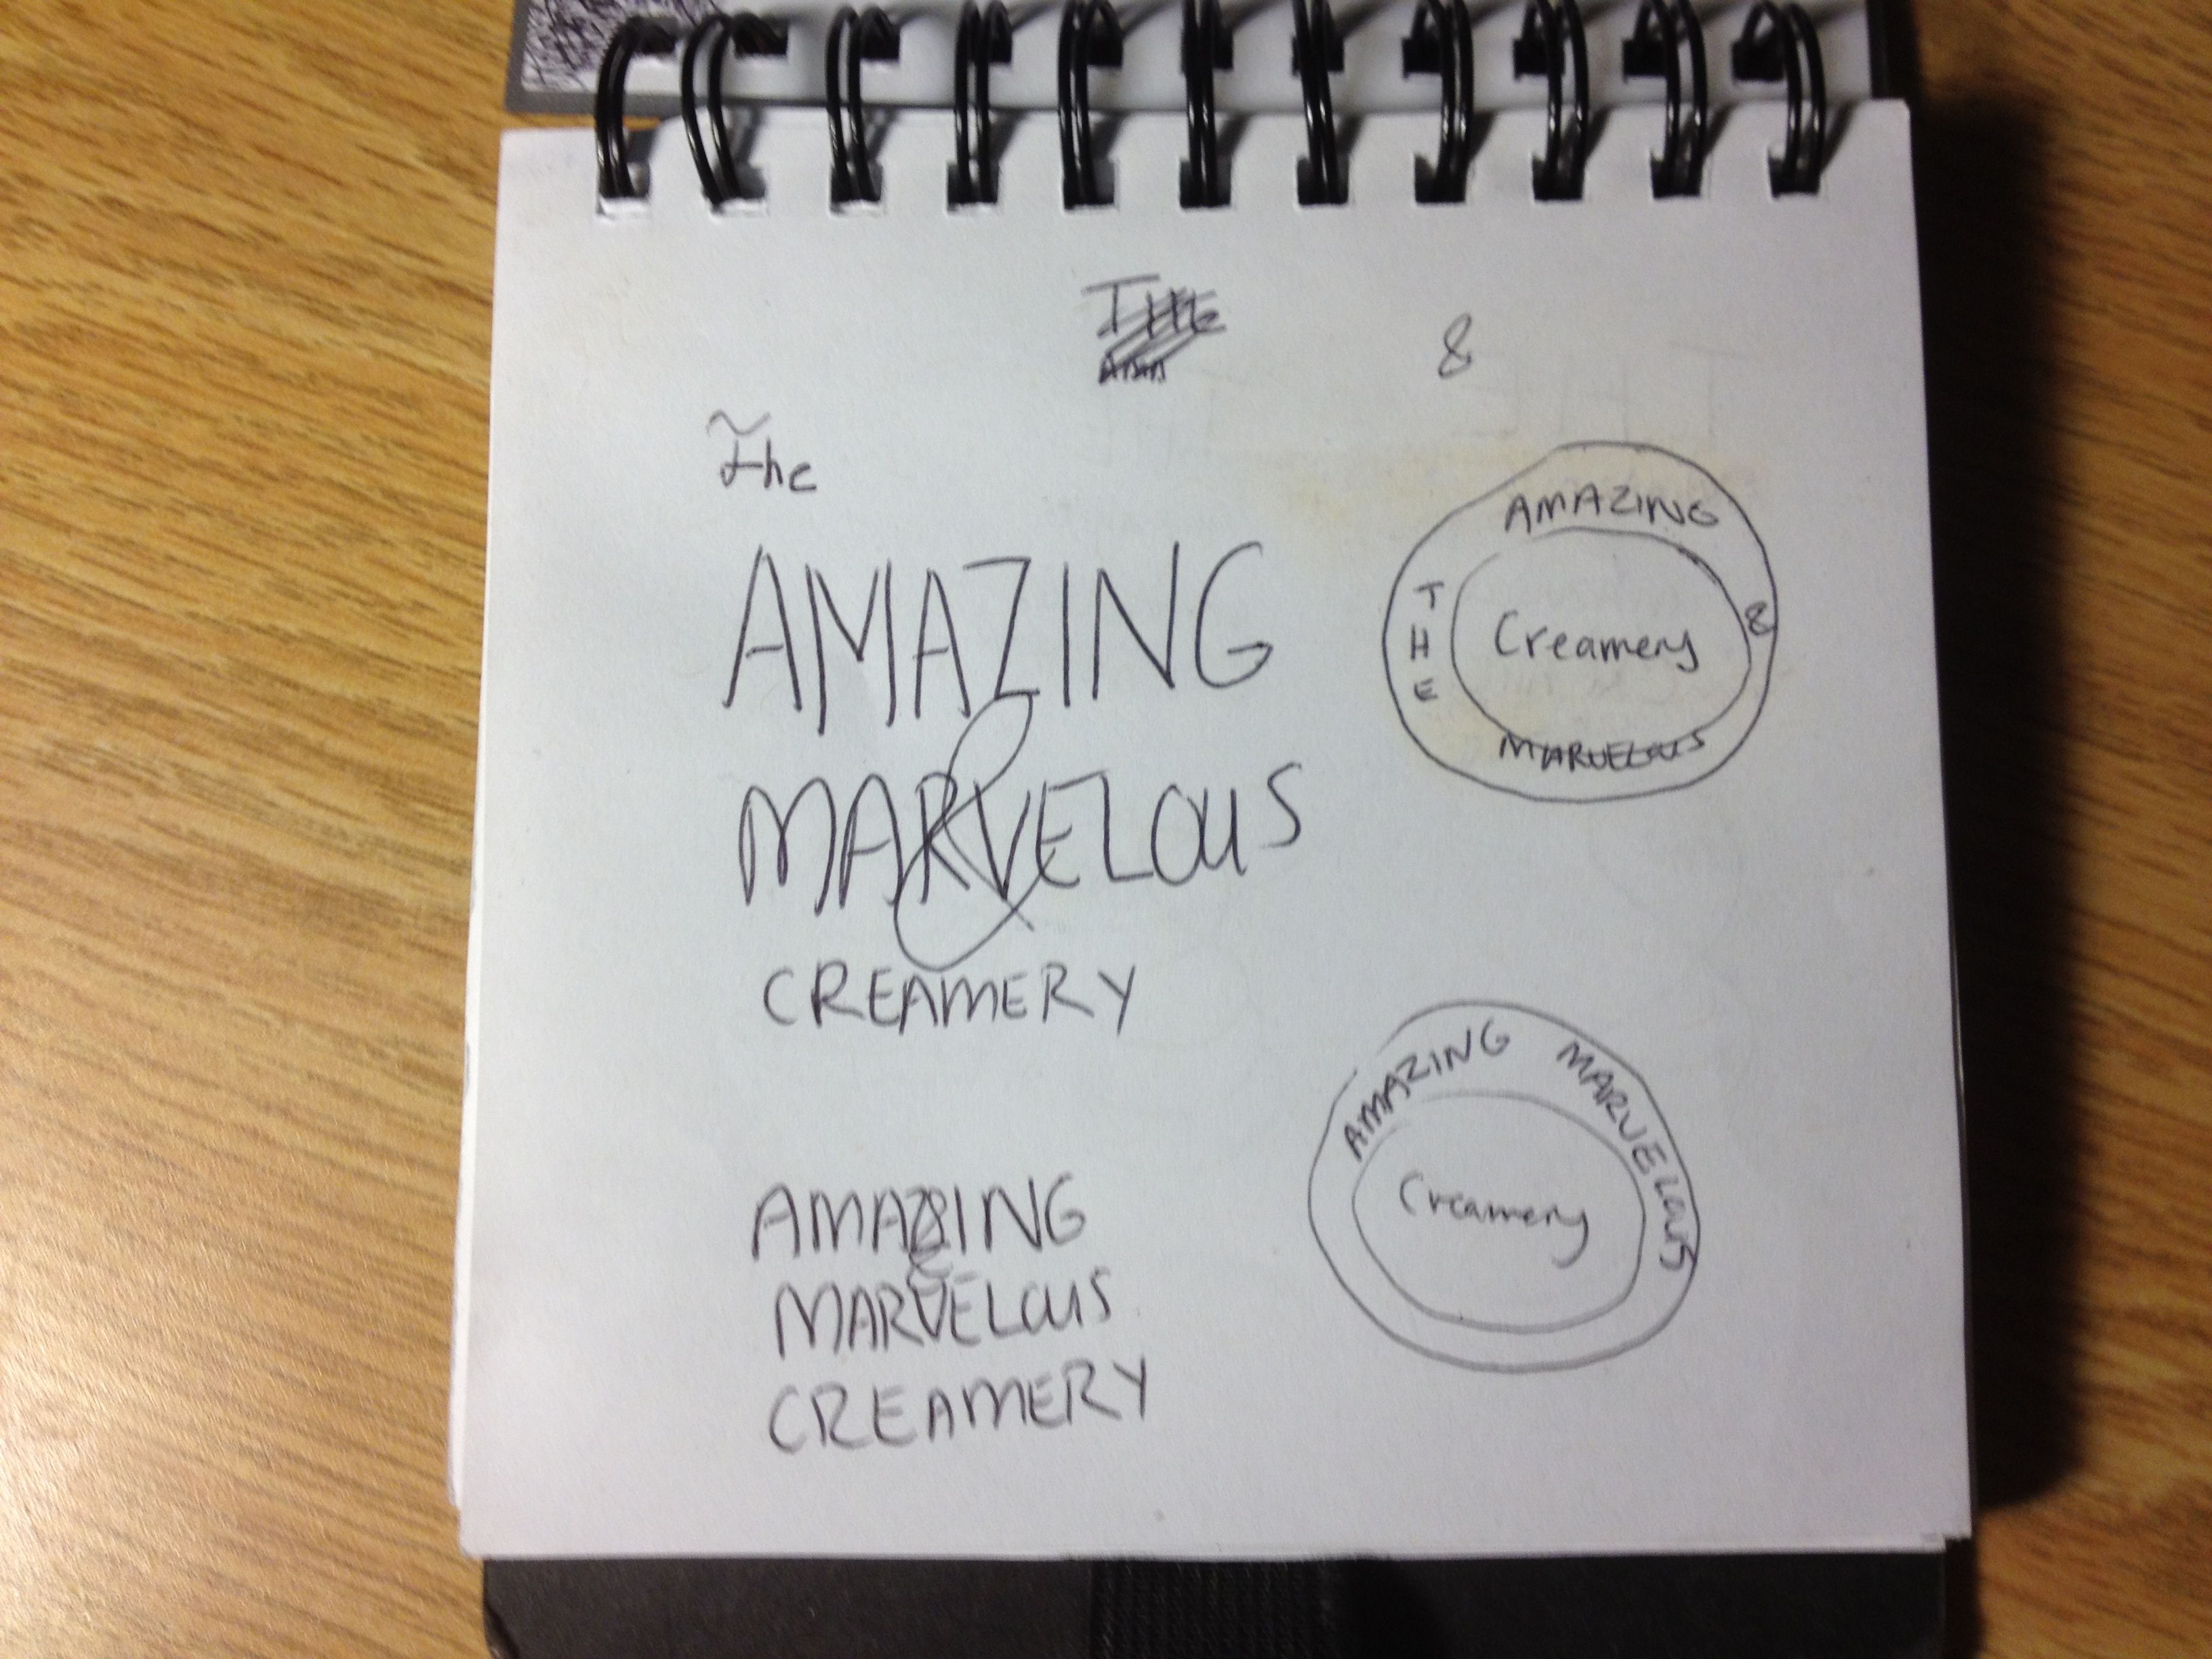 &
The
AMAZING
&
MARVELOUS
CREAMERY
THE
AMAZING
&
MARVELOUS
Creamery
AMAZING
&
MARVELOUS
CREAMERY
AMAZING MARVELOUS
Creamery